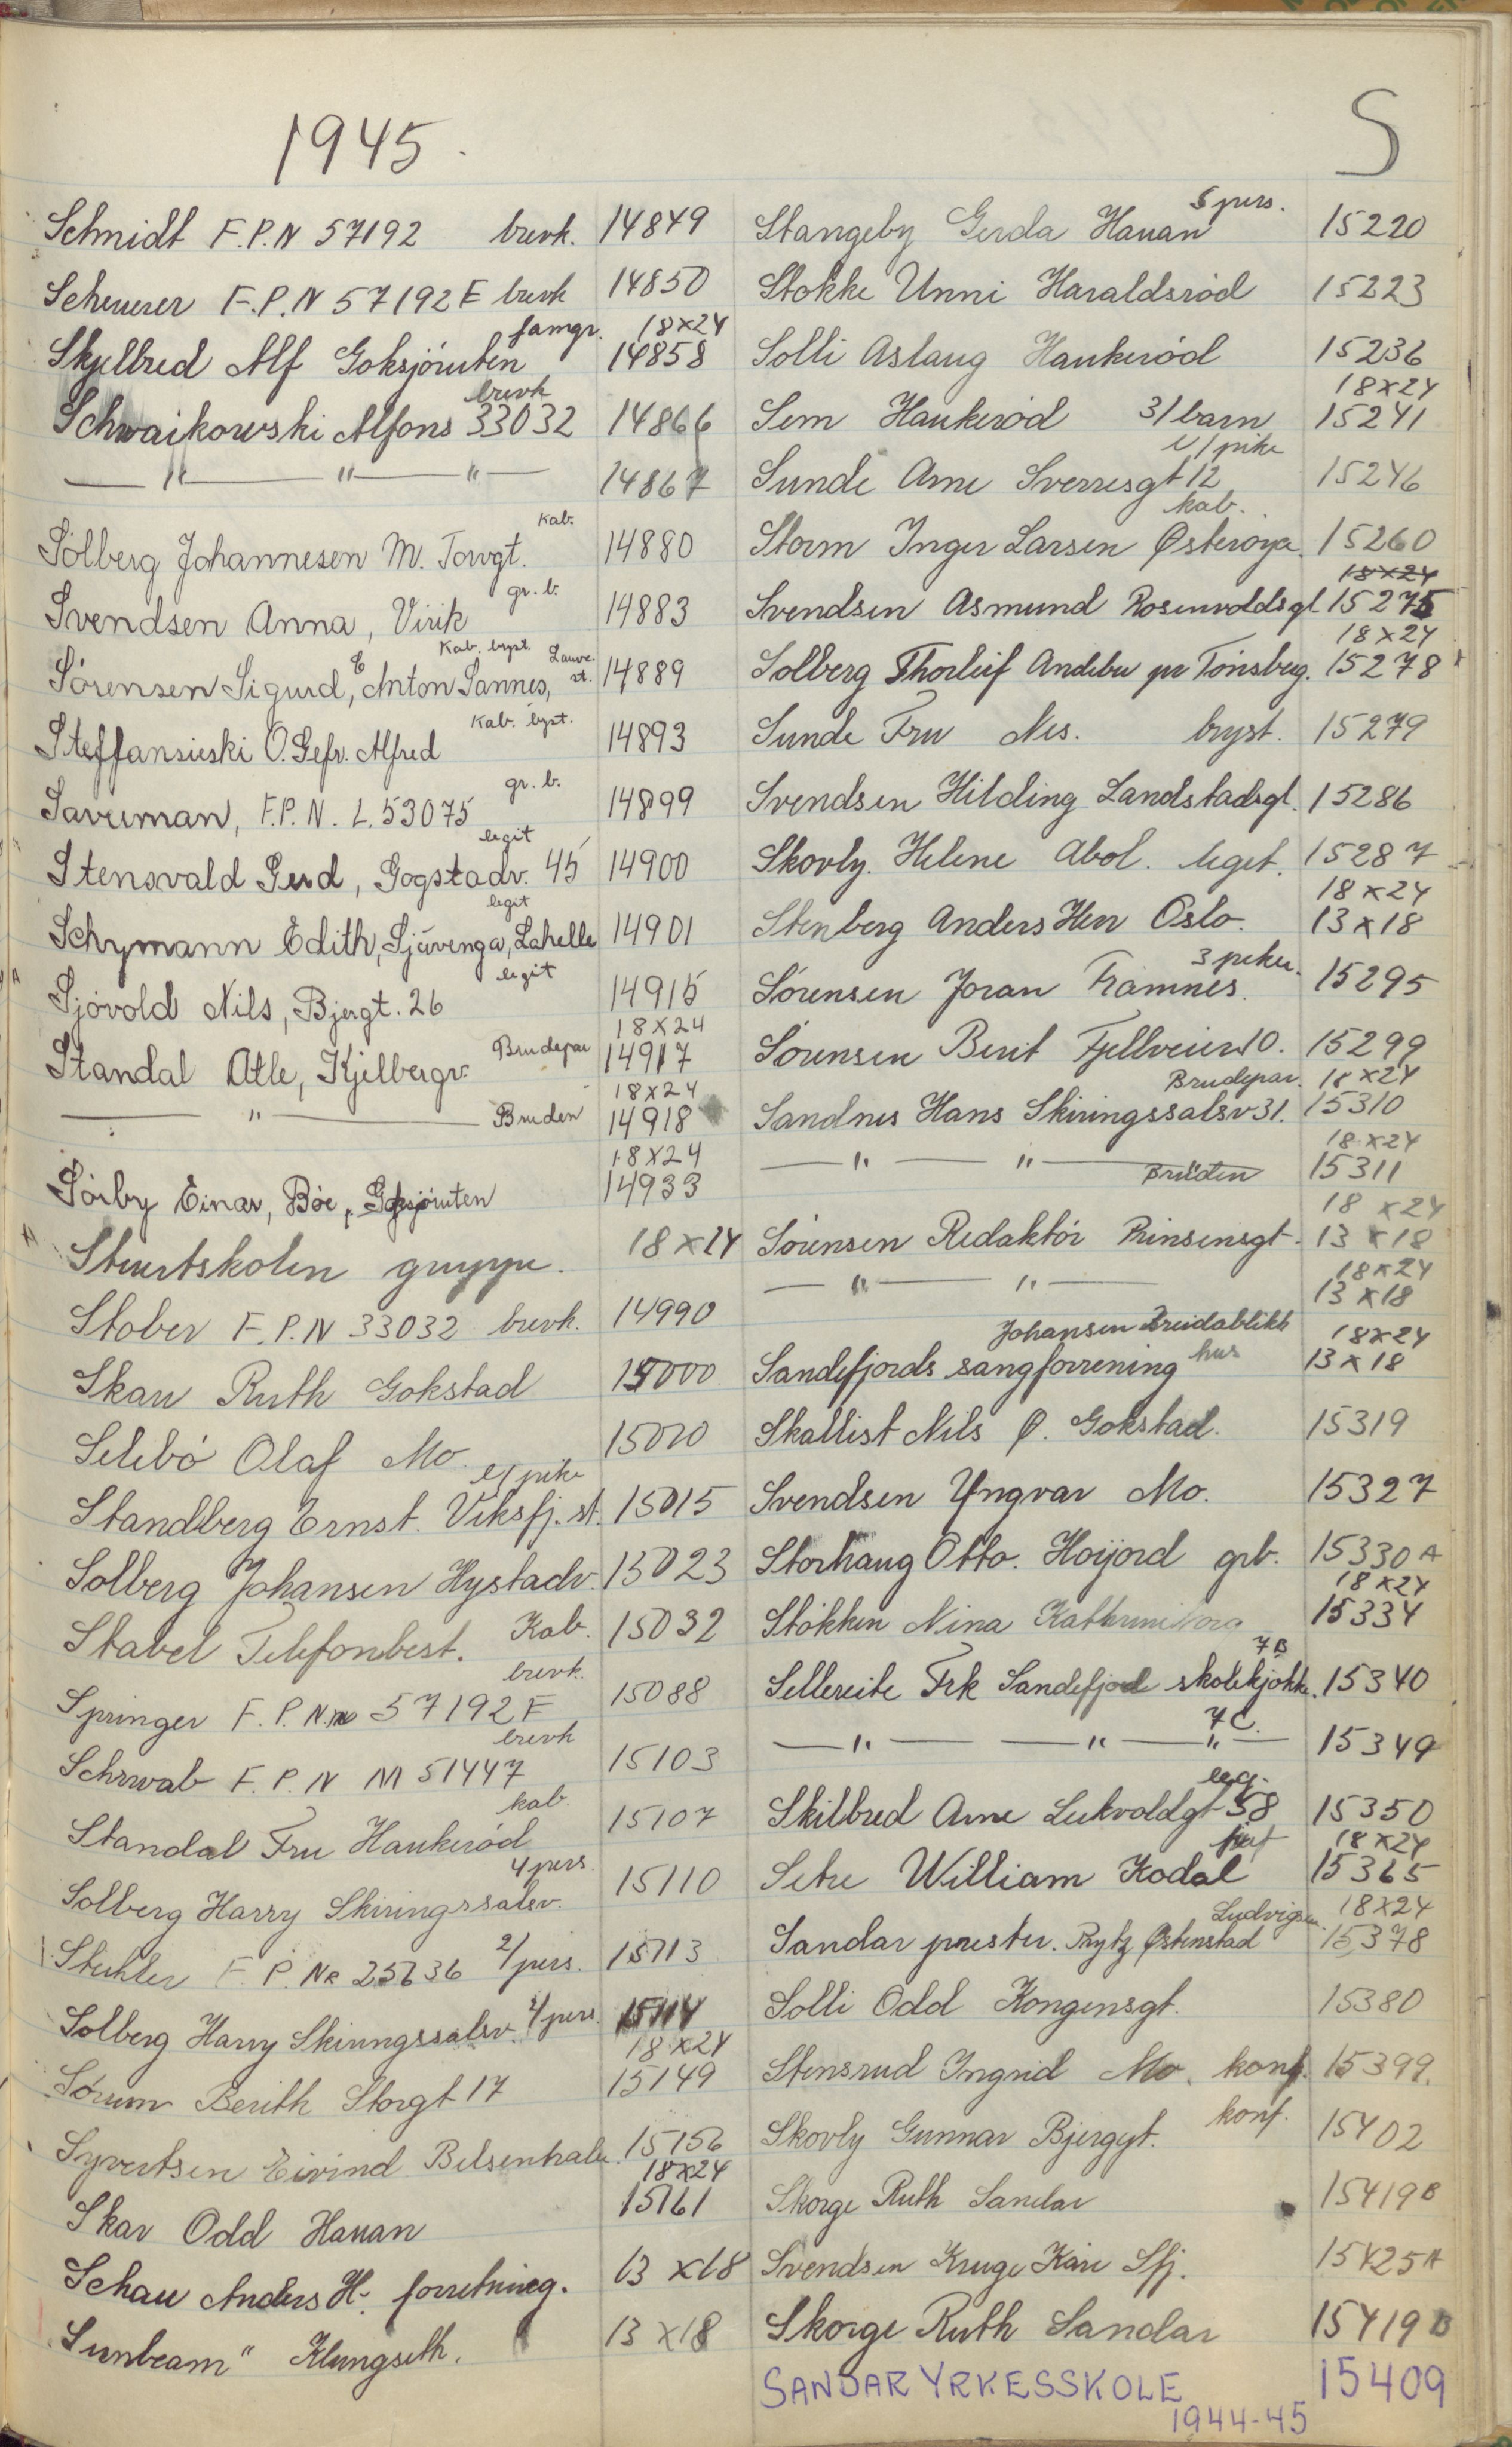 1945.
S
Schmidt F.P.N 57192 brevk. 14849
Scheurer F.P.N 57192 E brevk 14850
famgr. 18x24
Skjelbred Alf Goksjöruten 14858
brevk
Schwaikowski Alfons 33032 14866
— " — " — " — 14867
Kab.
Sólberg Johannesen M. Torvgt. 14880
gr. b.
Svendsen Anna, Virik 14883
Kab. bryst. Lauve.
Sörensen Sigurd, E Anton Sannes, st. 14889
Kab. bryst.
Steffansieski O. Gefr. Alfred 14893
gr. b.
Saveman, F.P.N. L. 53075 14899
legit
Stensvald Gerd, Gogstadv. 45 14900
legit
Schymann Edith, Sjävenga, Lahelle 14901
legit
Sjövold Nils, Bjergt. 26 14915
18x24
Standal Atle, Kjelbergv. Brudepar 14917
18x24
— " — Bruden 14918
18x24
Sörby Einar, Böe, Goksjöruten 14933
Stuertskolen gruppe. 18x24
Stober F.P.N 33032 brevk. 14990
Skau Ruth Gokstad 15000
Selebö Olaf Mo 15010
e/pike
Standberg Ernst. Viksfj. st. 15015
Solberg Johansen Hystadv. 15023
Stavel Telefonbest. Kab. 15032
brevk.
Springer F.P.N. 57192 E 15088
brevk
Schwab F.P.N M 51447 15103
kab.
Standal Fru Haukeröd 15107
4 pers.
Solberg Harry Skiringssalsv. 15110
Stuhler F.P. NR 25636 2/pers. 15113
Solberg Harry Skiringssalsv. 4/pers. 15114
18x24
Sörum Berith Storgt 17 15149
Syvertsen Eivind Belsenhalv. 15156
18x24
Skar Odd Hauan 15161
Schau Anders H. forretning. 13x18
Sunbeam" Klungseth. 13x18
5 pers.
Stangeby Gerda Hauan 15220
Stokke Unni Haraldsröd 15223
Solli Aslaug Haukeröd 15236
18x24
Sem Haukeröd 3/barn 15241
e/pike
Sunde Arne Sverresgt 12 15246
kab.
Storm Inger Larsen Østeröya. 15260
18x24
Svendsen Asmund Rosenvoldsgt 15275
18x24
Solberg Thorleif Andebu pr Tönsberg. 15278
Sunde Fru Nes. bryst. 15279
Svendsen Hilding Landstadsgt. 15286
Skovly. Helene Abol. leget. 15287
18x24
Stenberg Anders Herr Oslo. 13x18
3 piker.
Sörensen Joran Framnes. 15295
Sörensen Berit Fjellveien 10. 15299
Brudepar. 18x24
Sandnes Hans Skiringssalsv 31. 15310
18x24
— " — " — Bruden 15311
18x24
Sörensen Redaktör Prinsensgt. 13x18
18x24
— " — " — 13x18
Johansen Breidablikk 18x24
Sandefjords sangforrening hus 13x18
Skallist Nils Ø. Gokstad. 15319
Svendsen Yngvar Mo. 15327
Storhaug Otto. Hoijord grb. 15330 A
18x24
Stökken Nina 15334
7B
Sellereite Frk Sandefjord skolekjökk. 15340
7C.
— " — — " — " — 15349
leg.
Skilbred Arne Lukvoldgt 58 15350
18x24
Setre William Kodal 15365
Ludvigsen. 18x24
Sandar prester. Prytz Østenstad 15378
Solli Odd Kongensgt. 15380
Stensrud Ingrid Mo. konf. 15399.
konf.
Skovly Gunnar Bjergyt. 15402
Skorge Ruth Sandar 15419 B
Svendsen Kruge Kåre Sfj. 15425 A
Skorge Ruth Sandar 15419 B
SANDAR YRKESSKOLE 15409
1944-45